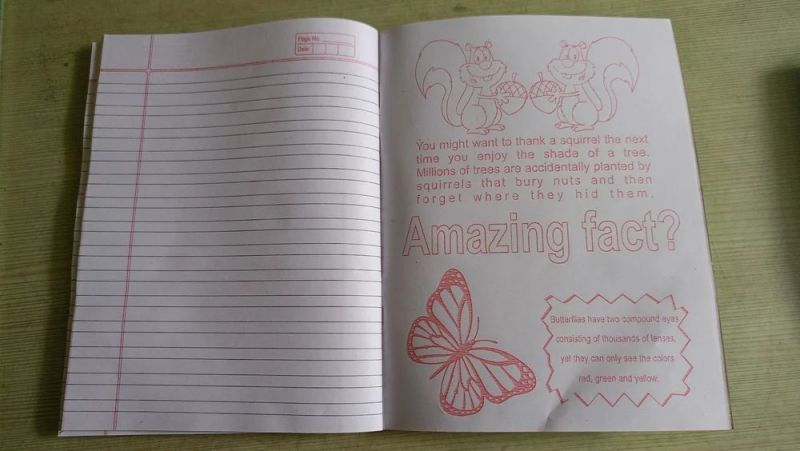 Page No.
Date:
You might want to thank a squirrel the next
time you enjoy the shade of a tree.
Millions of trees are accidentally planted by
squirrels that bury nuts and then
forget where they hid them.
Amazing fact?
Butterflies have two compound eyes
consisting of thousands of lenses,
yet they can only see the colors
red, green and yellow.